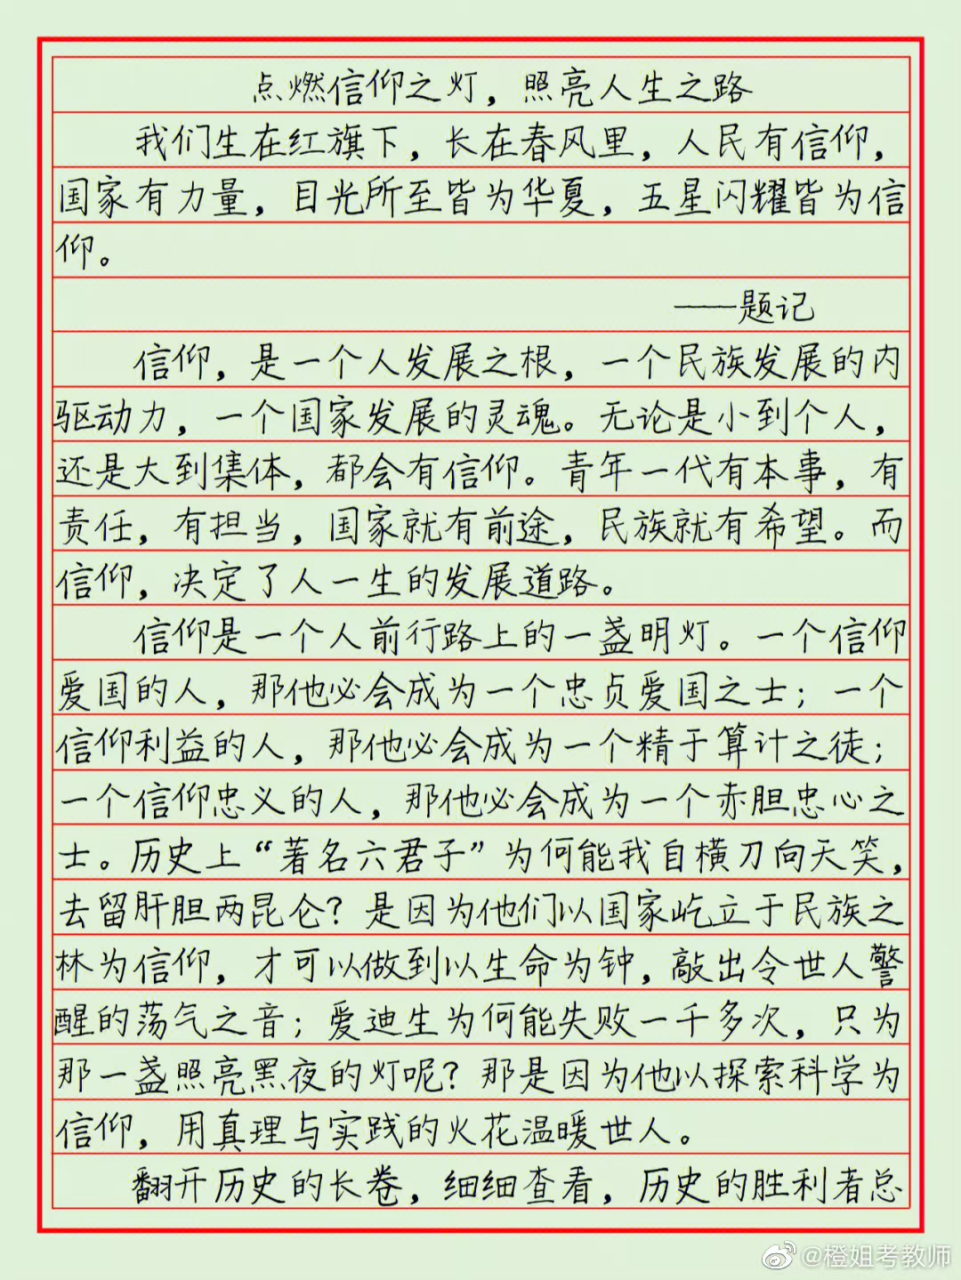 点燃信仰之灯，照亮人生之路
我们生在红旗下，长在春风里，人民有信仰，
国家有力量，目光所至皆为华夏，五星闪耀皆为信
仰。
——题记
信仰，是一个人发展之根，一个民族发展的内
驱动力，一个国家发展的灵魂。无论是小到个人，
还是大到集体，都会有信仰。青年一代有本事，有
责任，有担当，国家就有前途，民族就有希望。而
信仰，决定了人一生的发展道路。
信仰是一个人前行路上的一盏明灯。一个信仰
爱国的人，那他必会成为一个忠贞爱国之士；一个
信仰利益的人，那他必会成为一个精于算计之徒；
一个信仰忠义的人，那他必会成为一个赤胆忠心之
士。历史上“著名六君子”为何能我自横刀向天笑，
去留肝胆两昆仑？是因为他们以国家屹立于民族之
林为信仰，才可以做到以生命为钟，敲出令世人警
醒的荡气之音；爱迪生为何能失败一千多次，只为
那一盏照亮黑夜的灯呢？那是因为他以探索科学为
信仰，用真理与实践的火花温暖世人。
翻开历史的长卷，细细查看，历史的胜利者总
@橙姐考教师